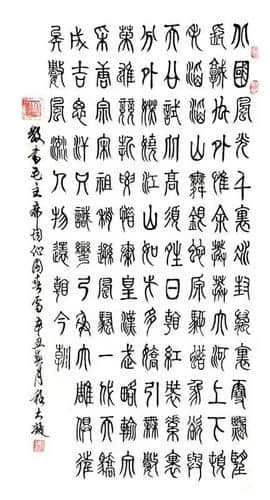 北國風光千里冰封萬里雪飄望
長城內外惟餘莽莽大河上下頓
失滔滔山舞銀蛇原馳蠟象欲與
天公試比高須晴日看紅裝素裹
分外妖嬈江山如此多嬌引無數
英雄競折腰惜秦皇漢武略輸文
采唐宗宋祖稍遜風騷一代天驕
成吉思汗只識彎弓射大雕俱往
矣數風流人物還看今朝
敬書毛主席詞沁園春雪辛丑月